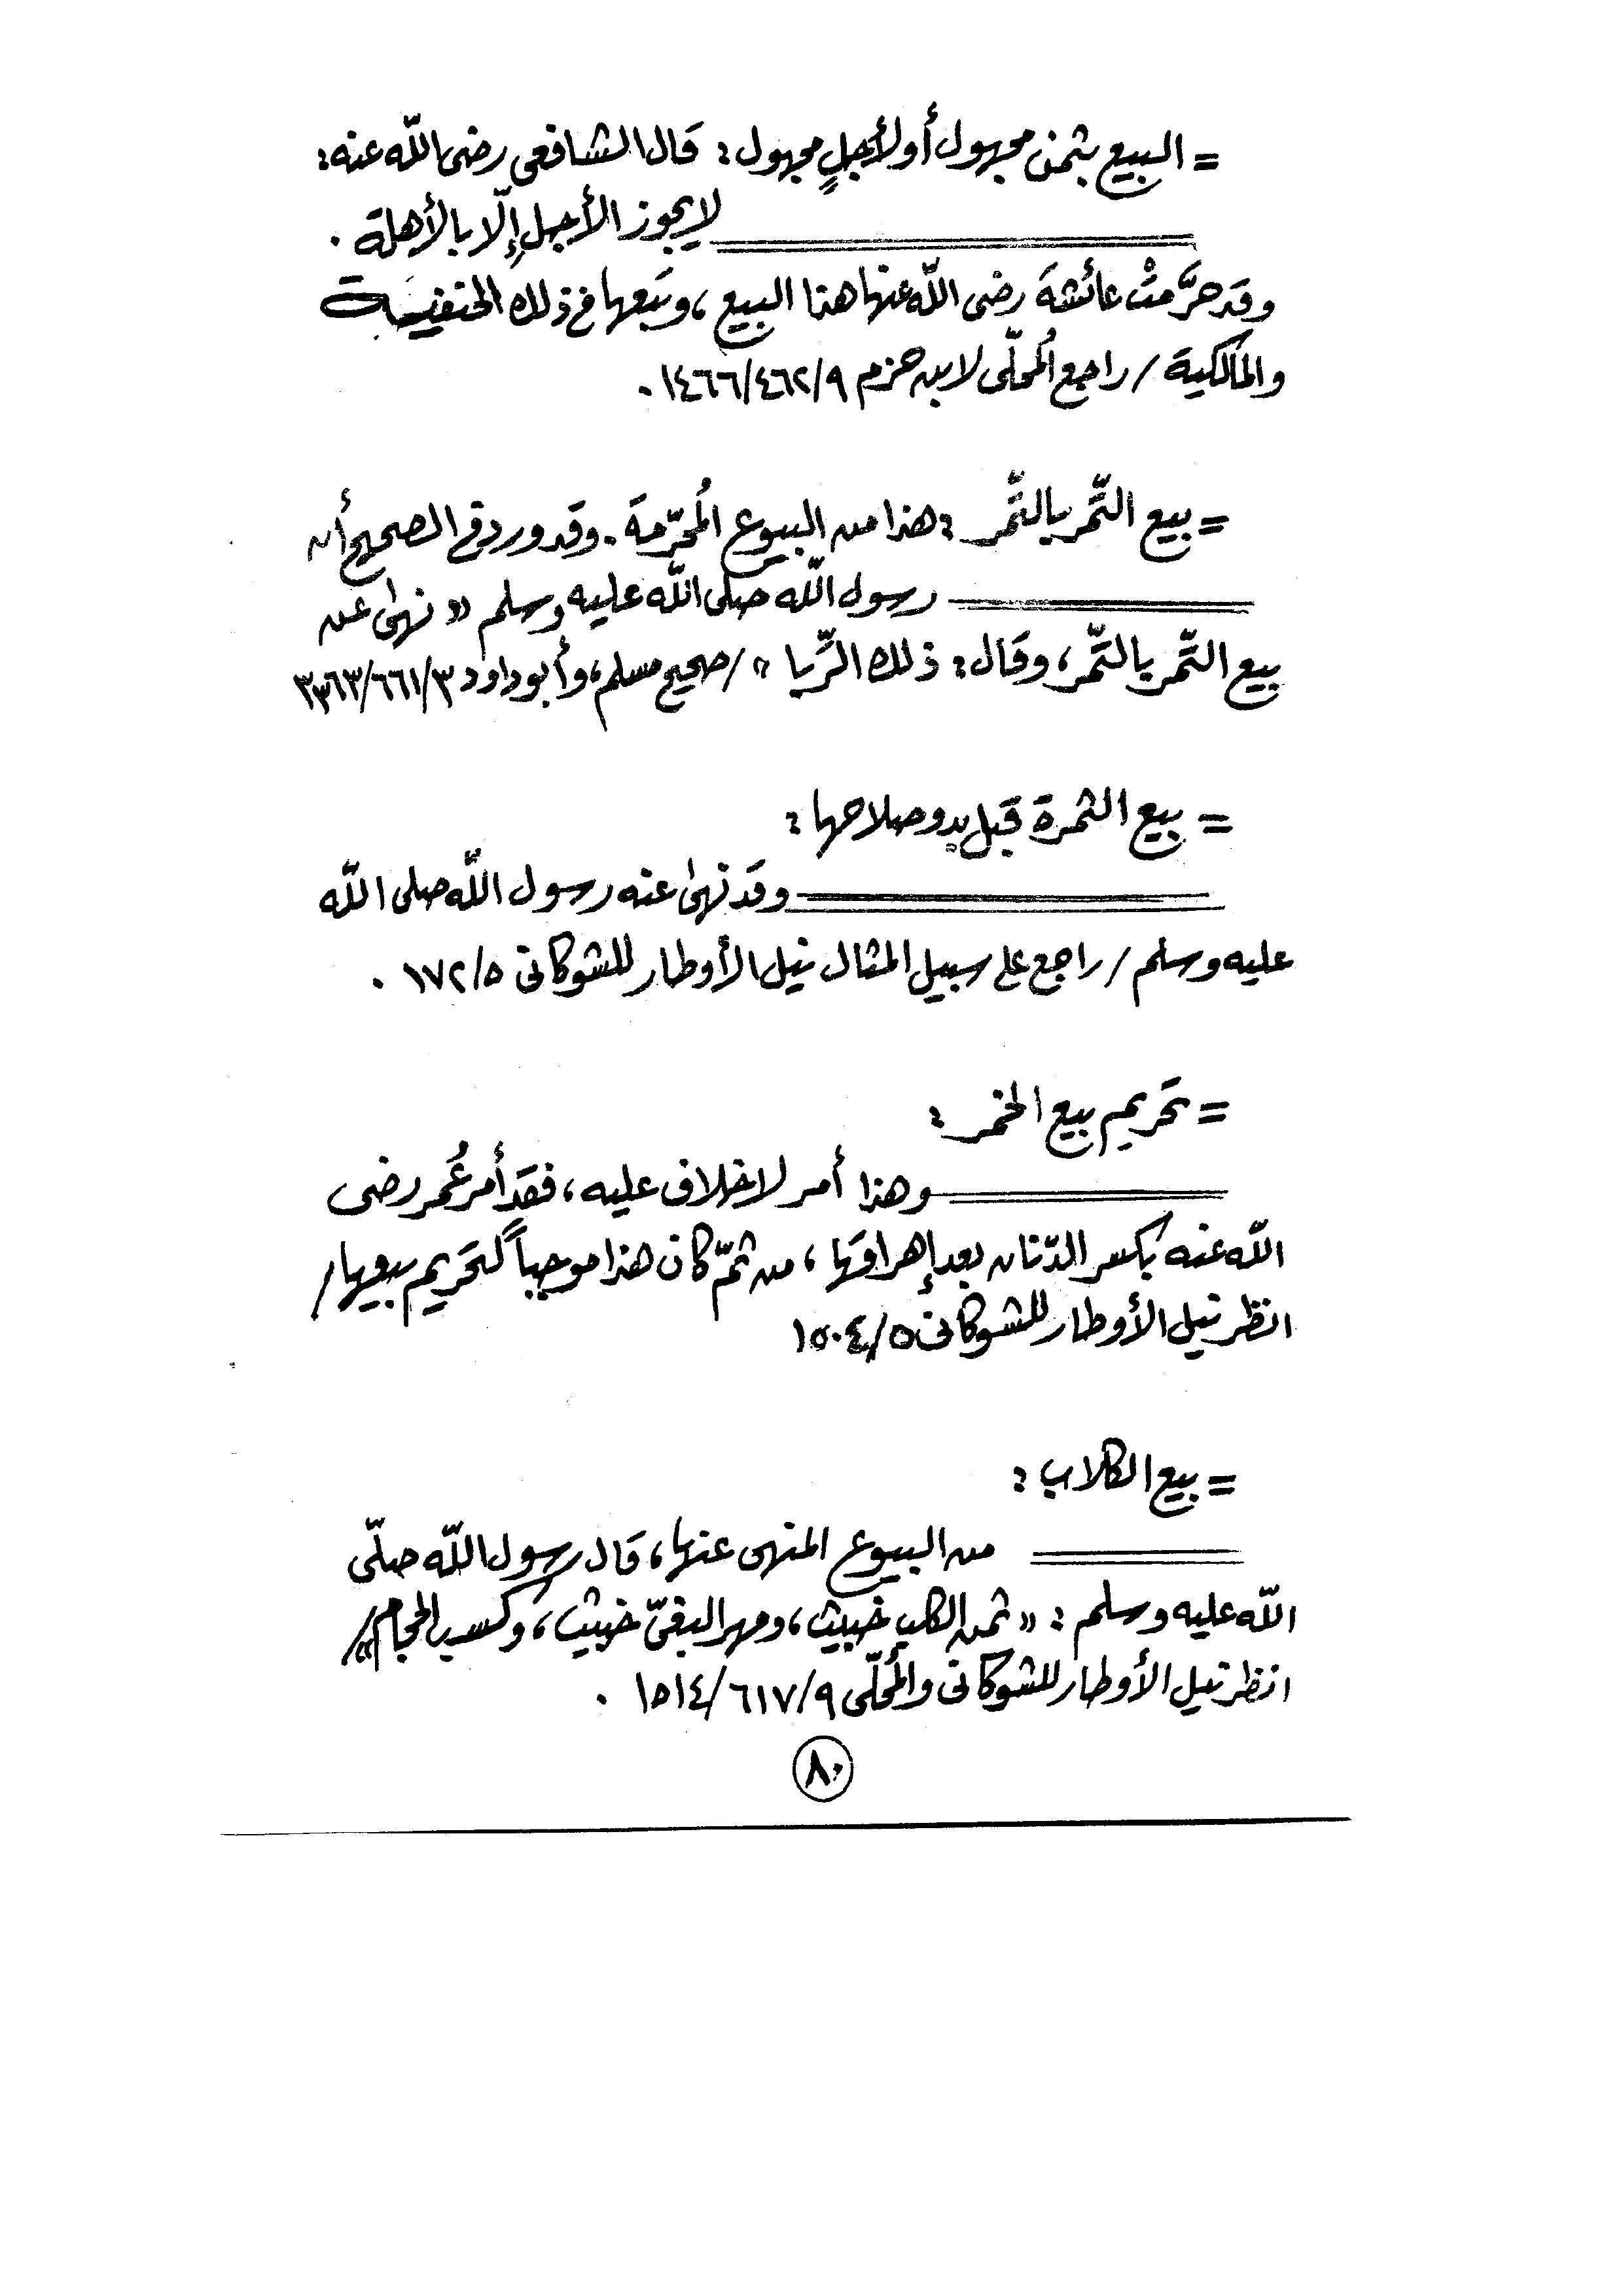 = البيع بثمن مجهول أو لأجلٍ مجهول : قال الشافعى رضى اللّه عنه :
لا يجوز الأجل إلّا بالأهلة .
وقد حرَّمتْ عائشةَ رضى اللّه عنها هذا البيع ، وتبعها فى ذلك الحنفيـة
والمالكية / راجع المُحلّى لابن حزم ٩/٤٦٢/١٤٦٦ .
= بيع التّمر بالتّمر : هذا من البيوع المُحرّمة . وقد ورد فى الصحيح أن
رسول اللّه صلى اللّه عليه وسلم « نهىٰ عن
بيع التّمر بالتّمر ، وقال : ذلك الرِّبا » / صحيح مسلم ، وأبو داود ٣/٦٦١/٣٣٦٣
= بيع الثمرة قبل بدو صلاحها :
وقد نهىٰ عنه رسول اللّه صلى اللّه
عليه وسلم / راجع على سبيل المثال نيل الأوطار للشوكانى ٥/١٧٢ .
= تحريم بيع الخمر :
وهذا أمر لا خلاف عليه ، فقد أمر عُمر رضى
اللّه عنه بكسر الدّنان بعد إهراقها ، من ثمّ كان هذا موجباً لتحريم بيعها /
انظر نيل الأوطار للشوكانى ٥/١٥٠٤
= بيع الكلاب :
من البيوع المنهى عنها ، قال رسول اللّه صلّى
اللّه عليه وسلم : « ثمن الكلب خبيث ، ومهر البغىّ خبيث ، وكسب الحجام » /
انظر نيل الأوطار للشوكانى والمُحلّى ٩/٦١٧/١٥١٤ .
٨٠